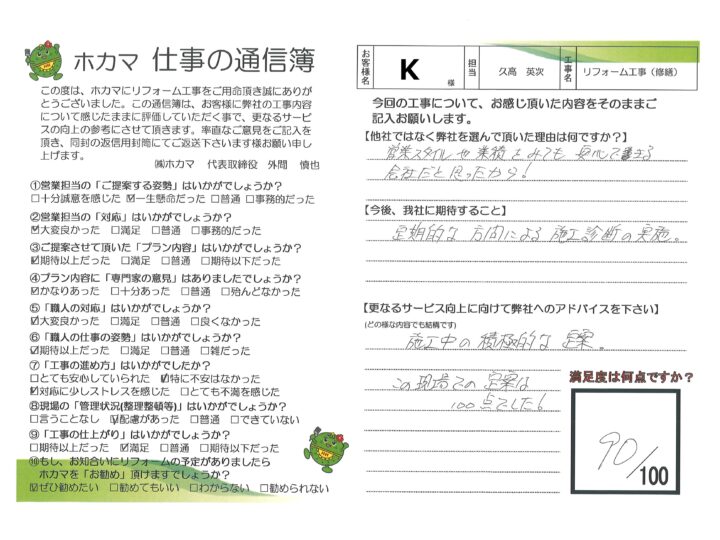 ホカマ 仕事の通信簿
この度は、ホカマにリフォーム工事をご用命頂き誠にありが
とうございました。この通信簿は、お客様に弊社の工事内容
について感じたままに評価していただく事で、更なるサービ
スの向上の参考にさせて頂きます。率直なご意見をご記入を
頂き、同封の返信用封筒にてご返送下さいます様お願い申
し上げます。
㈱ホカマ 代表取締役 外間 慎也
①営業担当の「ご提案する姿勢」はいかがでしょうか?
□十分誠意を感じた ☑一生懸命だった □普通 □事務的だった
②営業担当の「対応」はいかがでしょうか?
☑大変良かった □満足 □普通 □事務的だった
③ご提案させて頂いた「プラン内容」はいかがでしょうか?
☑期待以上だった □満足 □普通 □期待以下だった
④プラン内容に「専門家の意見」はありましたでしょうか?
☑かなりあった □十分あった □普通 □殆んどなかった
⑤「職人の対応」はいかがでしょうか?
☑大変良かった □満足 □普通 □良くなかった
⑥「職人の仕事の姿勢」はいかがでしょうか?
☑期待以上だった □満足 □普通 □雑だった
⑦「工事の進め方」はいかがでしたか?
□とても安心していられた ☑特に不安はなかった
☑対応に少しストレスを感じた □とても不満を感じた
⑧現場の「管理状況(整理整頓等)」はいかがでしょうか?
□言うことなし ☑配慮があった □普通 □できていない
⑨「工事の仕上がり」はいかがでしょうか?
□期待以上だった ☑満足 □普通 □期待以下だった
⑩もし、お知合いにリフォームの予定がありましたら
ホカマを「お勧め」頂けますでしょうか?
☑ぜひ勧めたい □勧めてもいい □わからない □勧められない
お客様名 K 様 担当 久高 英次 工事名 リフォーム工事(修繕)
今回の工事について、お感じ頂いた内容をそのままご
記入お願いします。
【他社ではなく弊社を選んで頂いた理由は何ですか?】
営業スタイルや業績をみても 安心で きる
会社だと思ったから!
【今後、我社に期待すること】
定期的な 訪問による 施工診断の実施。
【更なるサービス向上に向けて弊社へのアドバイスを下さい】
(どの様な内容でも結構です)
施工中の積極的な 提案。
この現場での 提案は
100点でした!
満足度は何点ですか?
90/100